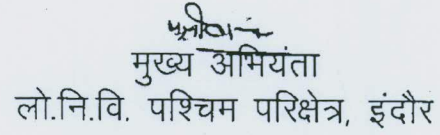 मुख्य अभियंता
लो.नि.वि. पश्चिम परिक्षेत्र, इंदौर